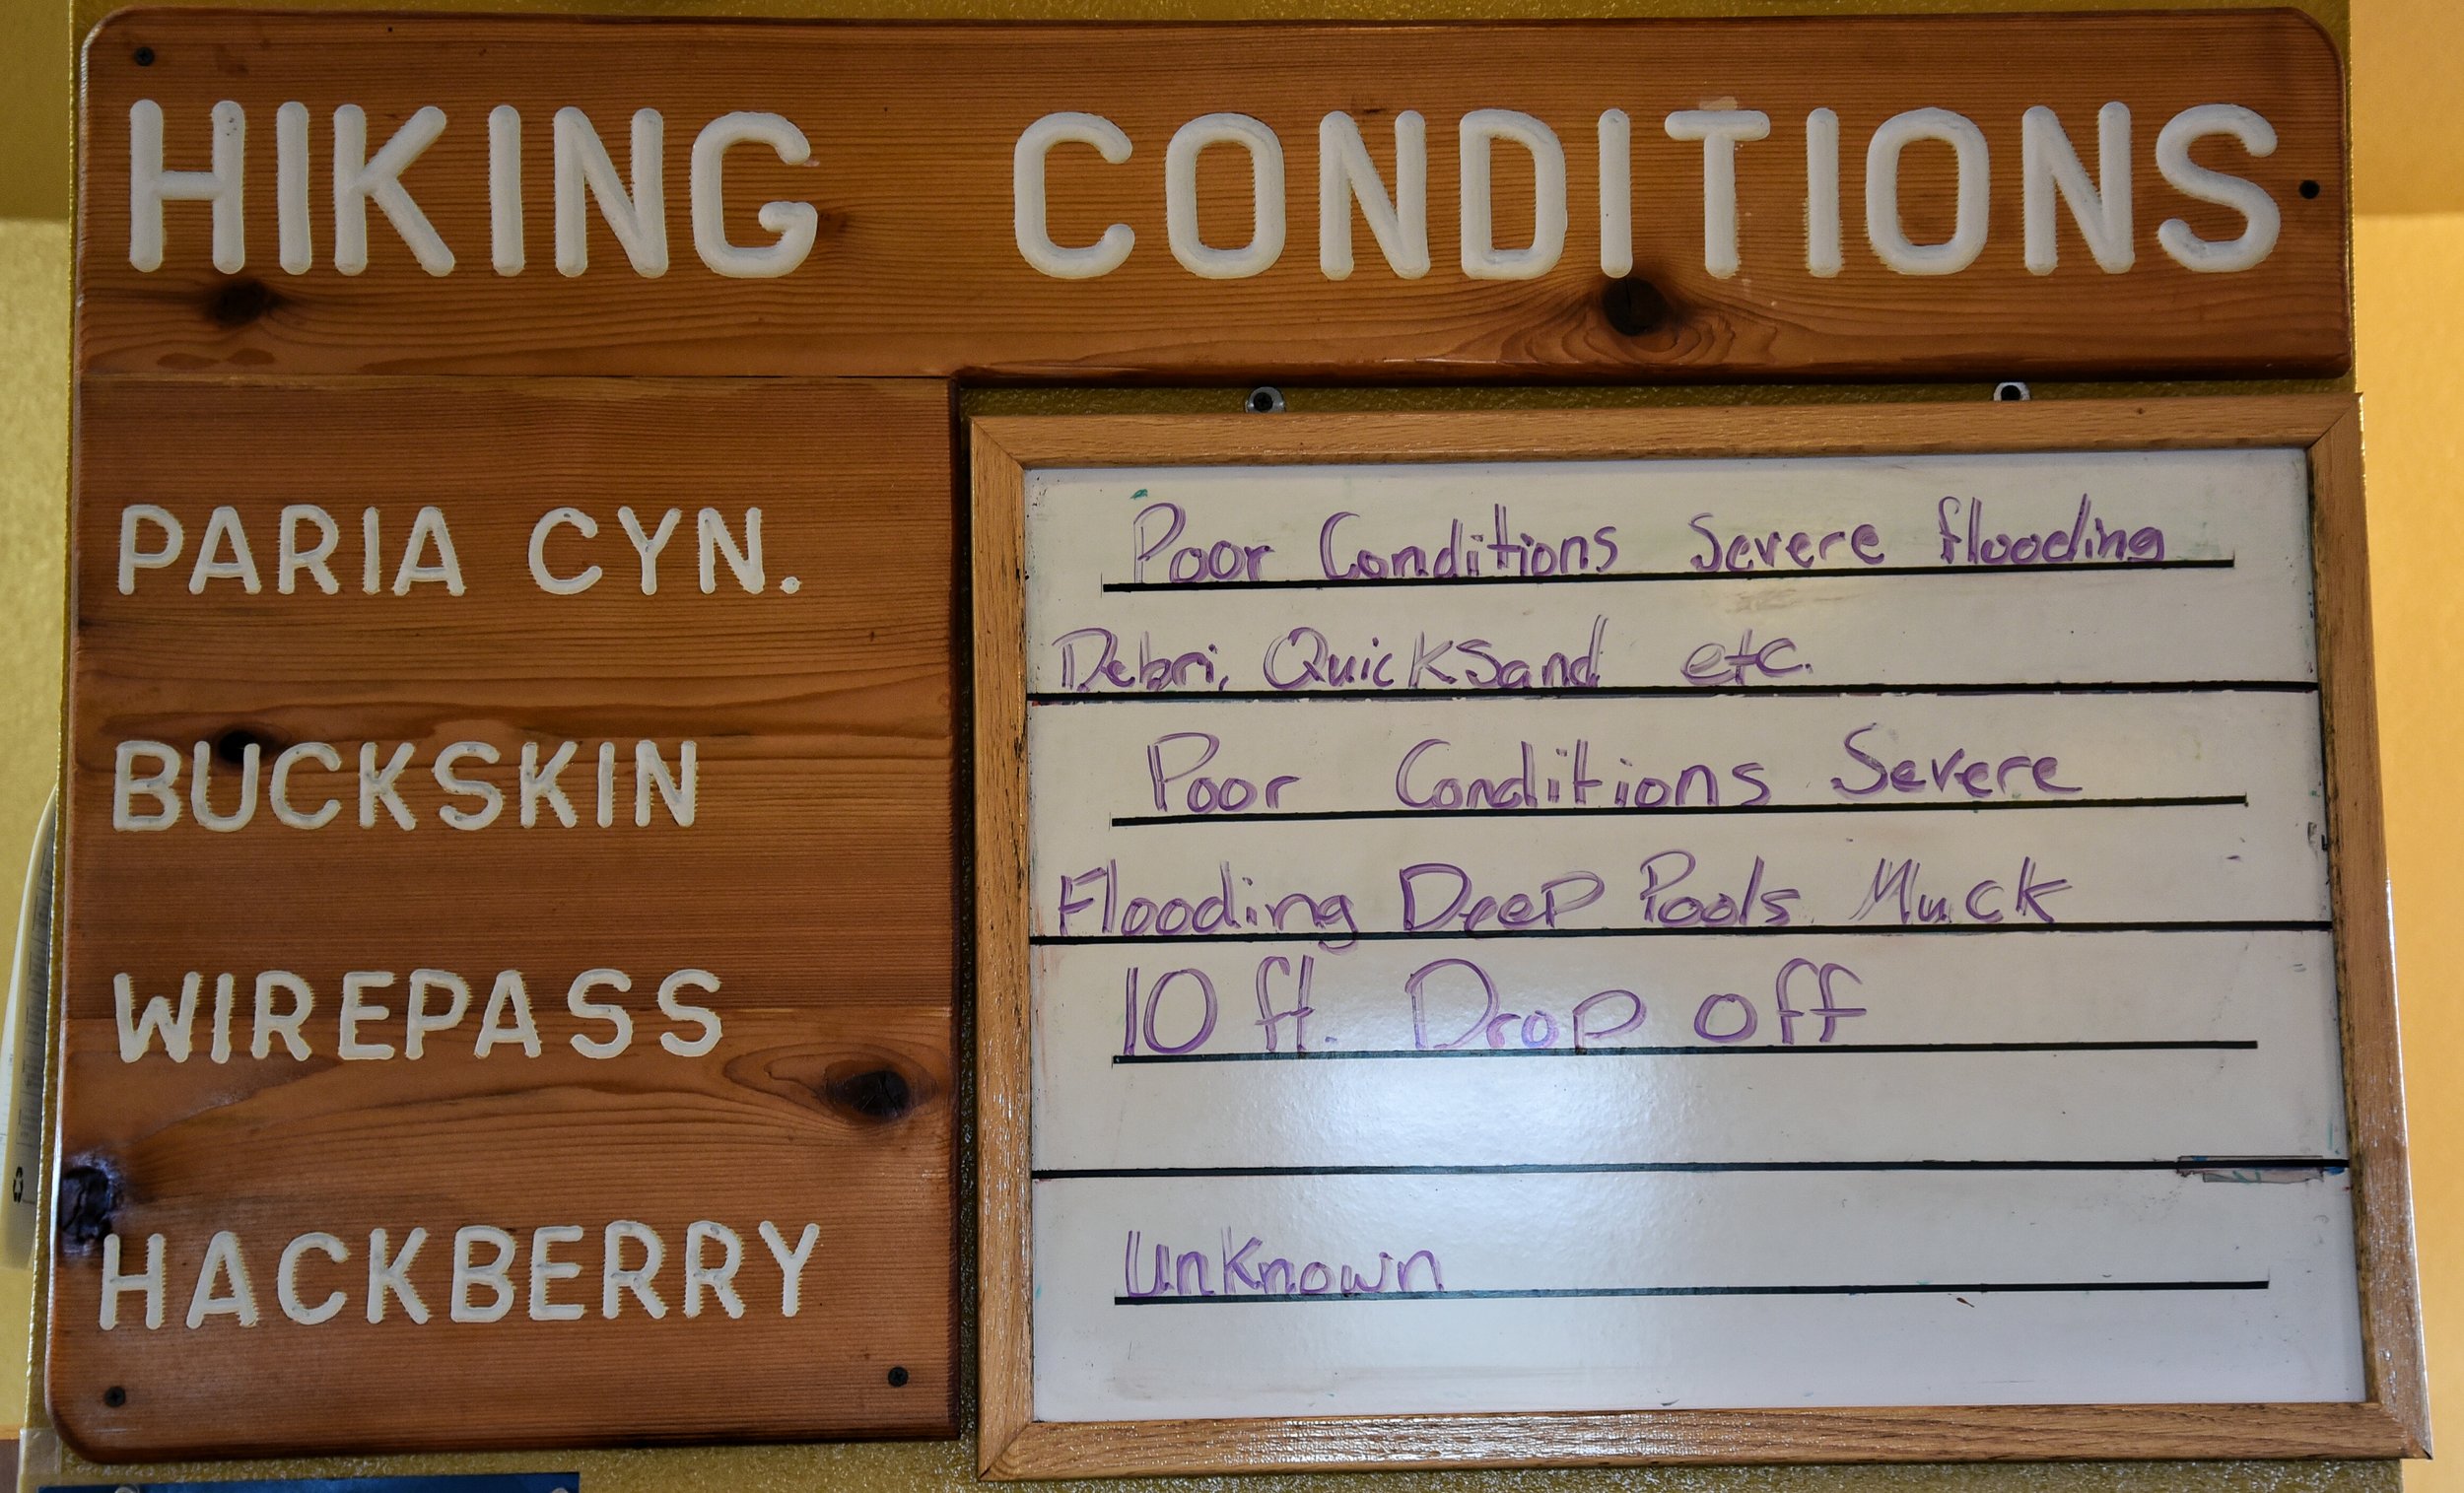 HIKING CONDITIONS
PARIA CYN.
Poor Conditions Severe flooding
Debri, QuickSand etc.
BUCKSKIN
Poor Conditions Severe
Flooding Deep Pools Muck
WIREPASS
10 ft. Drop off
HACKBERRY
Unknown